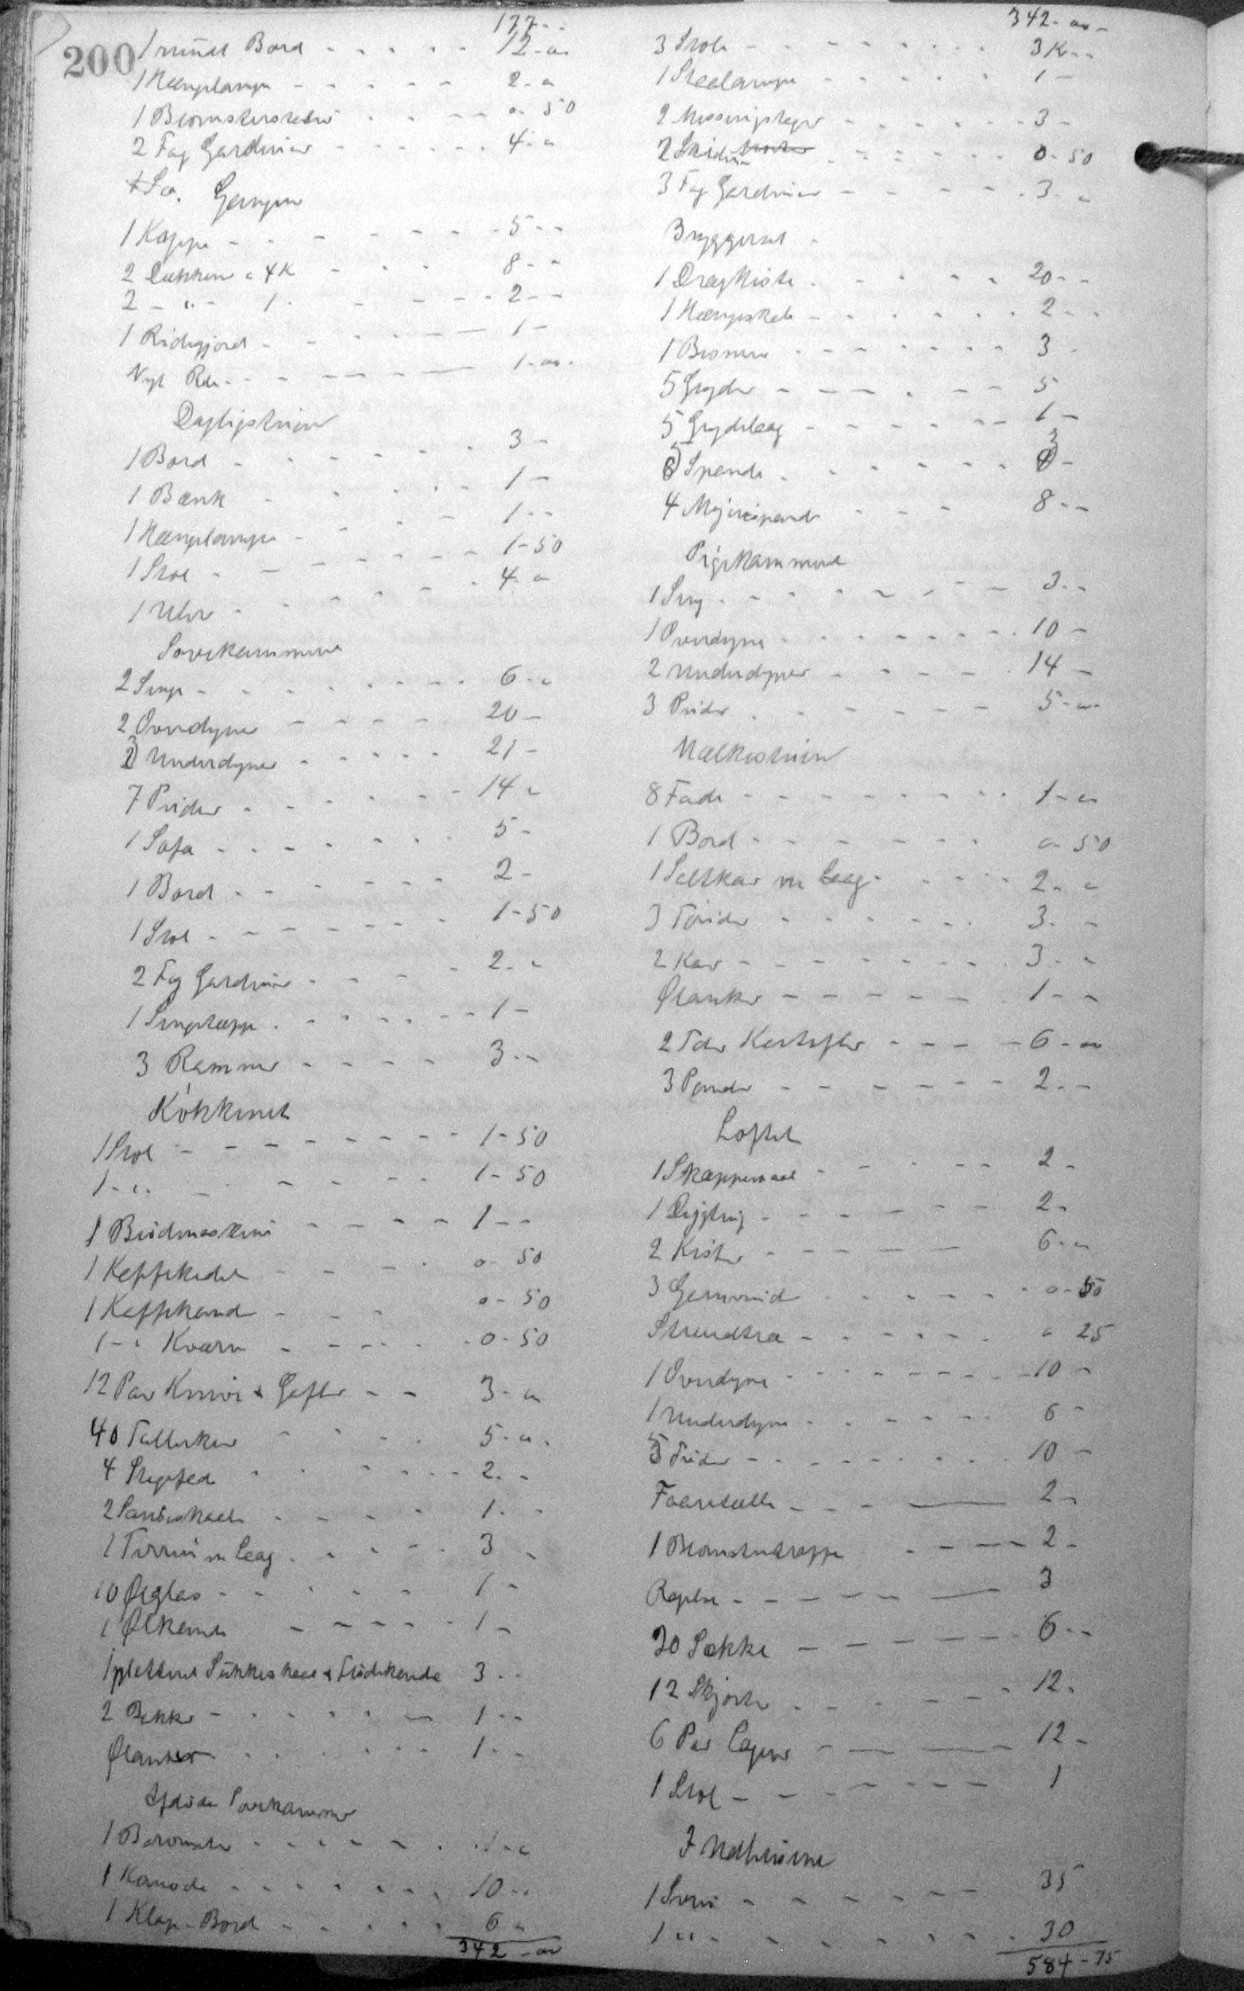 200
177 - -
1 rundt Bord - - - - - 12 - "
1 Hænglampe - - - - - 2 - "
1 Blomsterstativ - - - - 0 - 50
2 Fag Gardiner - - - - 4 - "
Gangen
1 Kappe - - - - - - 5 - -
2 Dækkener a 4 K - - - 8 - -
2 - " - 1 - - - - 2 - -
1 Ridegjord - - - - 1 -
- - - - 1 - " -
Dagligstuen
1 Bord - - - - - 3 -
1 Bænk - - - - 1 -
1 Hænglampe - - - - 1 - -
1 Stol - - - - - 1 - 50
1 Uhr - - - - - 4 - "
Sovekammeret
2 Senge - - - - - - 6 - "
2 Overdyner - - - - - 20 -
3 Underdyner - - - - - 21 -
7 Puder - - - - - 14 "
1 Sofa - - - - - - 5 -
1 Bord - - - - - - 2 -
1 Stol - - - - - - 1 - 50
2 Fag Gardiner - - - - 2 - "
1 Sengetæppe - - - - - 1 -
3 Rammer - - - - 3 - -
Køkkenet
1 Stol - - - - - - - 1 - 50
1 - " - - - - - 1 - 50
1 Brødmaskine - - - - 1 - -
1 Kaffekedel - - - 0 - 50
1 Kaffekande - - - 0 - 50
1 - " Kværn - - - - 0 - 50
12 Par Knive & Gafler - - 3 - "
40 Tallerken - - - - 5 - "
4 Stegefad - - - - - 2 - -
2 Sauseskaale - - - - 1 - -
1 Terrin m Laag - - - - 3 -
10 Ølglas - - - - - 1 -
1 Ølkande - - - - 1 -
1 plettered Sukkerskaal & Flødekande 3 - -
2 Bakker - - - - - - 1 - -
Ølanker - - - - - - 1 - -
1 Barometer - - - - - - 1 - "
1 Komode - - - - - - 10 - -
1 Klap-Bord - - - - - 6 "
342 - "
342 - " -
3 Stole - - - - - - 3 K - -
1 Staalampe - - - - - 1 -
2 Messingstager - - - - - 3 -
2 - - - - - 0 - 50
3 Fag Gardiner - - - - - 3 - "
Bryggerset -
1 Dragkiste - - - - - 20 - -
1 Hængeskab - - - - - - 2 - -
1 - - - - - - 3 -
5 Gryder - - - - - - 5
5 Grydelaag - - - - - - 1 -
5 Spande - - - - - - 3 -
4 Mejerispande - - - 8 - -
Pigekammeret
1 Seng - - - - - - - 3 - -
1 Overdyne - - - - - - 10 -
2 Underdyner - - - - - 14 -
3 Puder - - - - - - 5 - "
Mælkestuen
8 Fade - - - - - - - 1 - "
1 Bord - - - - - - 0 - 50
1 Saltkar m Laag - - - - 2 - "
3 Tønder - - - - - - 3 - -
2 Kar - - - - - - - 3 - "
Ølanker - - - - - - 1 - -
2 Tdr Kartofler - - - - 6 - "
3 Pander - - - - - - 2 - -
Loftet
1 Skæppemaal - - - - - 2 -
1 Dejgtrug - - - - - - 2 -
2 Kister - - - - - 6 - "
3 - - - - - 0 - 50
- - - - - " 25
1 Overdyne - - - - - - 10 -
1 Underdyne - - - - - 6 -
5 Puder - - - - - - - 10 -
- - - 2 -
1 Blomstertrappe - - - - 2 -
- - - - 3
20 Sække - - - - - 6 - -
12 Skjorter - - - - - 12 -
6 Par Lagner - - - - 12 -
1 Stol - - - - - - 1
I Udhusene
1 - - - - - - 35
1 " - - - - - - - 30
584 - 75